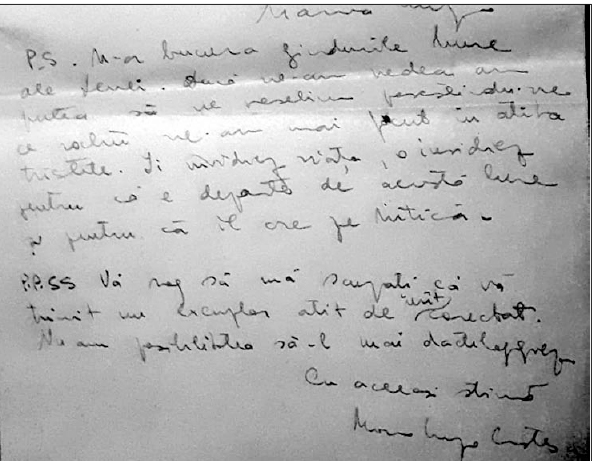 P.S. M-ar bucura gîndurile bune
ale Jenei. Dacă ne-am vedea am
putea să ne veselim
ce rochii ne-am mai făcut în atîta
tristețe. Îi invidiez viața, o invidiez
pentru că e departe de această lume
și pentru că îl are pe Mitică.
P.P.SS Vă rog să mă scuzați că vă
trimit un exemplar atît de urît corectat.
N-am posibilitatea să-l mai dactilografiez
Cu aceeași stimă